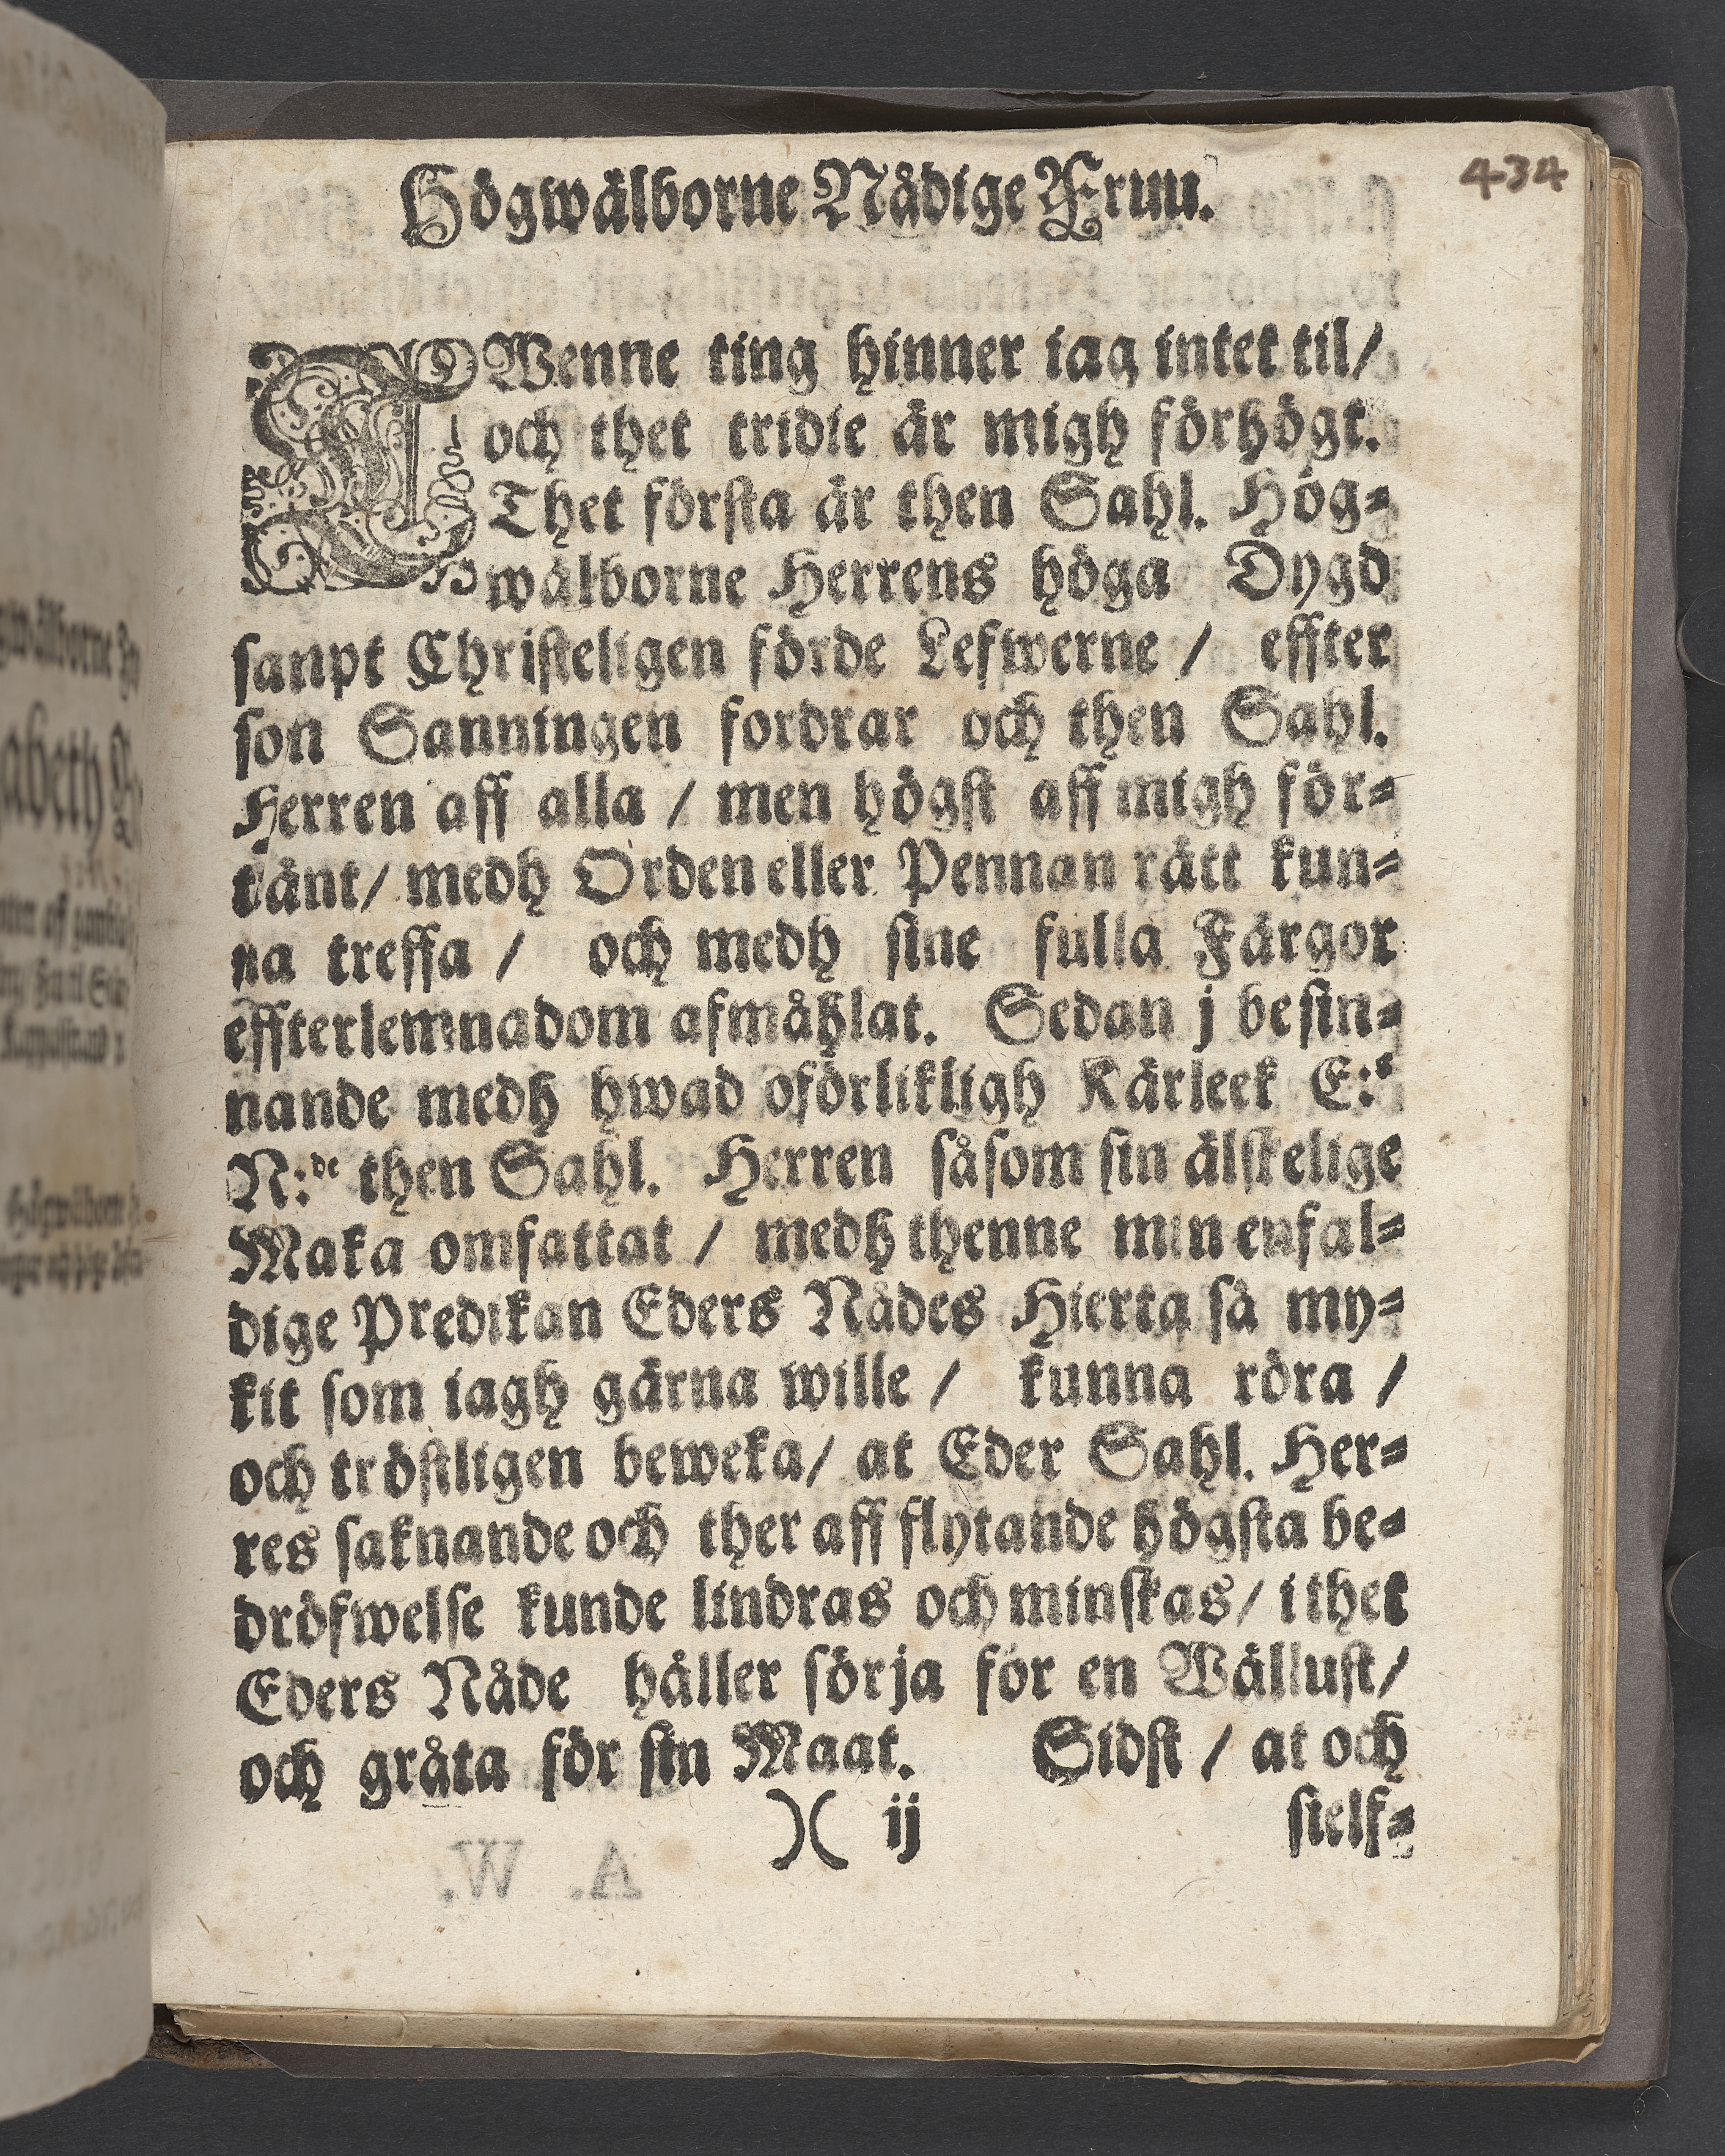 434
Högwälborne Nådige Fruu.
TWenne ting hinner iag intet til/
och thet tridie är migh förhögt.
Thet första är then Sahl. Hög=
wälborne Herrens höga Dygd
sanpt Christeligen förde Lefwerne / effter
son Sanningen fordrar och then Sahl.
Herren aff alla / men högst aff migh för=
tänt/ medh Orden eller Pennan rätt kun=
na treffa / och medh sine fulla Färgor
effterlemnadom afmåhlat. Sedan j besin=
nande medh hwad oförlikligh Kärleek E:s
N:de then Sahl. Herren såsom sin älskelige
Maka omfattat / medh thenne min enfal=
dige Predikan Eders Nådes Hierta så my=
kit som iagh gärna wille / kunna röra /
och tröstligen beweka/ at Eder Sahl. Her=
res saknande och ther aff flytande högsta be=
dröfwelse kunde lindras och minskas/ i thet
Eders Nåde håller sörja för en Wällust/
och gråta för sin Maat. Sidst / at och
)( ij sielf=